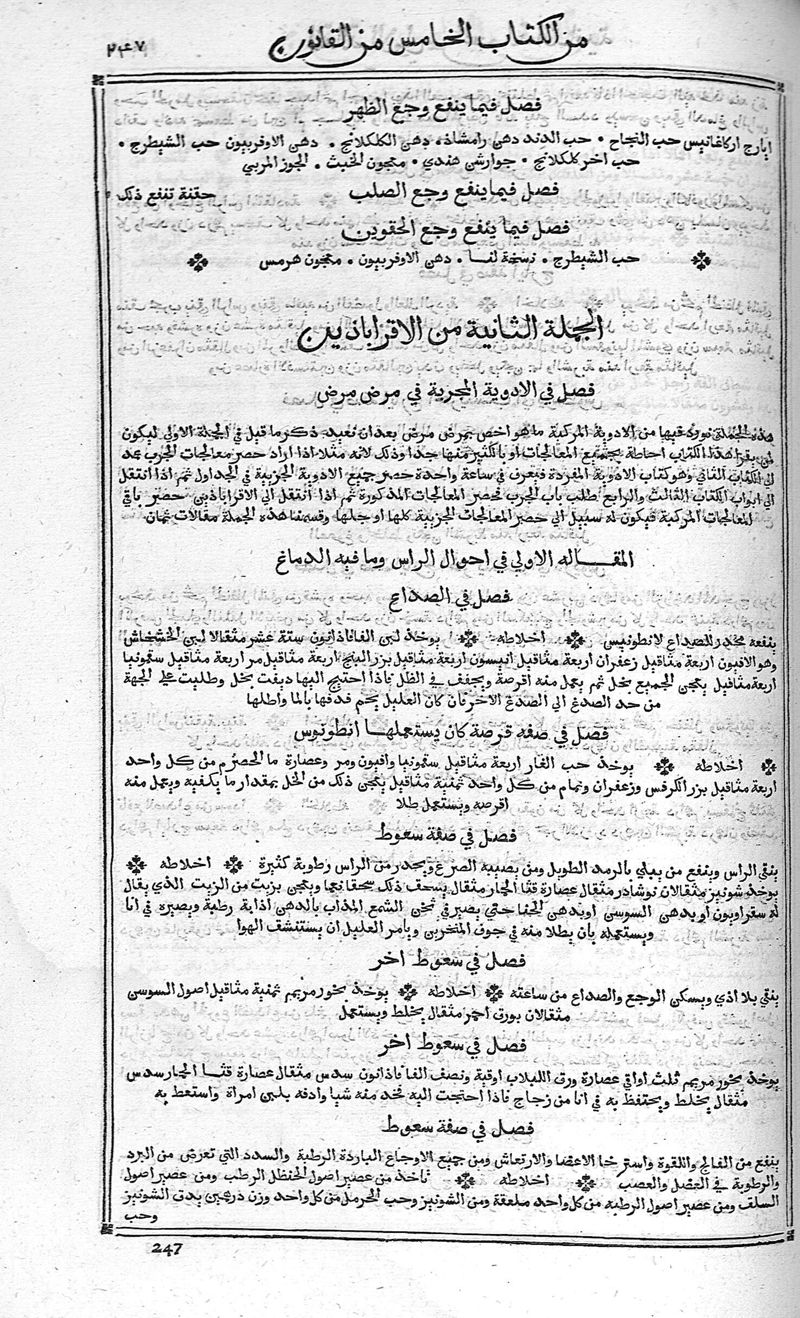 من الكتاب الخامس من القانون
٢٤٧
فصل فيما ينفع وجع الظهر
ايارج اركاغانيس حب النجاح • حب الدند دهن رامشاذ، دهن الكلكلانج • دهن الاوفربيون حب الشيطرج •
حب اخر كلكلانج • جوارشن هندي • معجون الخبث • الجوز المربي
فصل فيما ينفع وجع الصلب حقنة تنفع ذلك
فصل فيما ينفع وجع الحقوين
حب الشيطرج • نسخة لنا • دهن الاوفربيون • معجون هرمس
الجملة الثانية من الاقراباذين
فصل في الادوية المجربة في مرض مرض
هذه الجملة نورد فيها من الادوية المركبة ما هو اخص بمرض مرض بعد ان نعيد ذكر ما قيل في الجملة الاولي ليكون
لمن يقرا هذا الكتاب احاطة بجميع المعالجات او باكثير منها جدا وذلك لانه مثلا اذا اراد حصر معالجات الجرب عمد
الي الكتاب الثاني وهو كتاب الادوية المفردة فيعرف في ساعة واحدة حصر جميع الادوية الجزيية في الجداول ثم اذا انتقل
الي ابواب الكتاب الثالث والرابع طلب باب الجرب فحصر المعالجات المذكورة ثم اذا انتقل الي الاقراباذين حصر باقي
المعالجات المركبة فيكون له سبيل الي حصر المعالجات الجزيية كلها او جلها • وقسمنا هذه الجملة مقالات ثمان
المقاله الاولي في احوال الراس وما فيه الدماغ
فصل في الصداع
ينفعه مخدر للصداع لانطونيس اخلاطه يوخذ لبن الفافاذانون ستة عشر مثقالا لبن الخشخاش
وهو الافيون اربعة مثاقيل زعفران اربعة مثاقيل انيسون اربعة مثاقيل بزر البنج اربعة مثاقيل مر اربعة مثاقيل سقمونيا
اربعة مثاقيل يعجن الجميع بخل ثم يعمل منه اقرصة ويجفف في الظل فاذا احتيج اليها ديفت بخل وطليت علي الجبهة
من حد الصدغ الي الصدغ الاخر فان كان العليل يحم فدفها بالما واطلها
فصل في صفه قرصة كان يستعملها انطونوس
اخلاطه يوخذ حب الغار اربعة مثاقيل سقمونيا وافيون ومر وعصارة ما الحصرم من كل واحد
اربعة مثاقيل بزر الكرفس وزعفران ونمام من كل واحد ثمنية مثاقيل يعجن ذلك من الخل بمقدار ما يكفيه ويعمل منه
اقرصه ويستعمل طلا
فصل في صفة سعوط
ينقي الراس وينفع من بيلي بالرمد الطويل ومن يصيبه الصرع ويحدر من الراس رطوبة كثيرة اخلاطه
يوخذ شونيز مثقالان نوشادر مثقال عصارة قثا الحمار مثقال يسحق ذلك سحقا نعما ويعجن بزيت من الزيت الذي يقال
له سقراوبون او بدهن السوسي او بدهن الحنا حتي يصير في ثخن الشمع المذاب بالدهن اذابة رطبة ويصيره في انا
ويستعمله بان يطلا منه في جوف المنخرين ويامر العليل ان يستنشف الهوا
فصل في سعوط اخر
ينقي بلا اذي ويسكن الوجع والصداع من ساعته اخلاطه يوخذ بخور مريم ثمنية مثاقيل اصول السوسن
مثقالان بورق احمر مثقال يخلط ويستعمل
فصل في سعوط اخر
يوخذ بخور مريم ثلث اواقي عصارة ورق اللبلاب اوقية ونصف الفافاذانون سدس مثقال عصارة قثا الحمار سدس
مثقال يخلط ويحتفظ به في انا من زجاج فاذا احتجت اليه فخذ منه شيا وادفه بلبن امراة واستعط به
فصل في صفة سعوط
ينفع من الفالج واللقوة واسترخا الاعضا والارتعاش ومن جميع الاوجاع الباردة الرطبة والسدد التي تعرض من البرد
والرطوبة في العضل والعصب اخلاطه ناخذ من عصير اصول الحنظل الرطب ومن عصير اصول
السلف ومن عصير اصول الرطبه من كل واحد ملعقة ومن الشونيز وحب الحرمل من كل واحد وزن درهمين يدق الشونيز
وحب
247